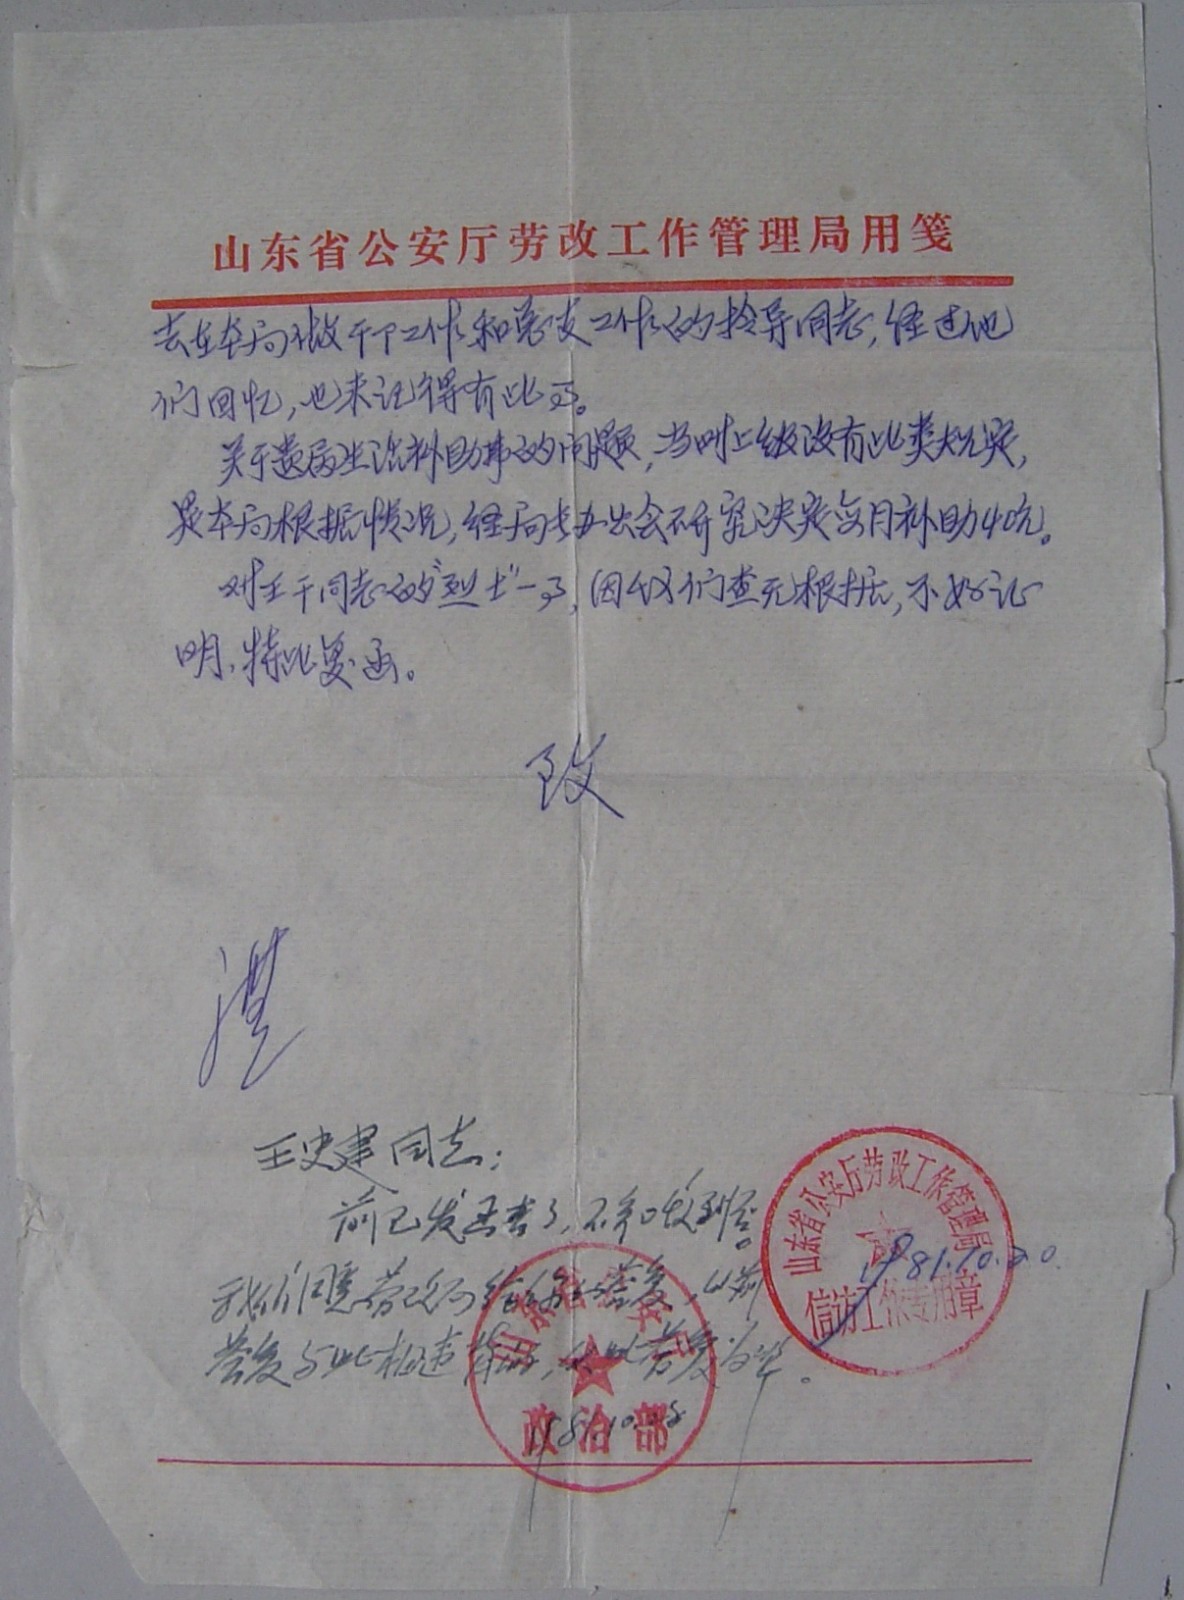 山东省公安厅劳改工作管理局用笺
去在本局做干下工作和总支工作的领导同志，经过他
们回忆，也未记得有此事。
关于遗属生活补助费的问题，当时上级没有此类规定，
是本局根据情况，经局长办公会研究决定每月补助40元。
对王干同志的“烈士”一事，因我们查无根据，不好证
明，特此复函。
致
礼
山东省公安厅劳改工作管理局
信访工作专用章
1981.10.20.
王史建同志：
前已发函去了，不知收到否。
我们同意劳改局给你的答复，以前
答复与此相违背的，以此答复为准。
山东省公安厅
政治部
1981.10.28